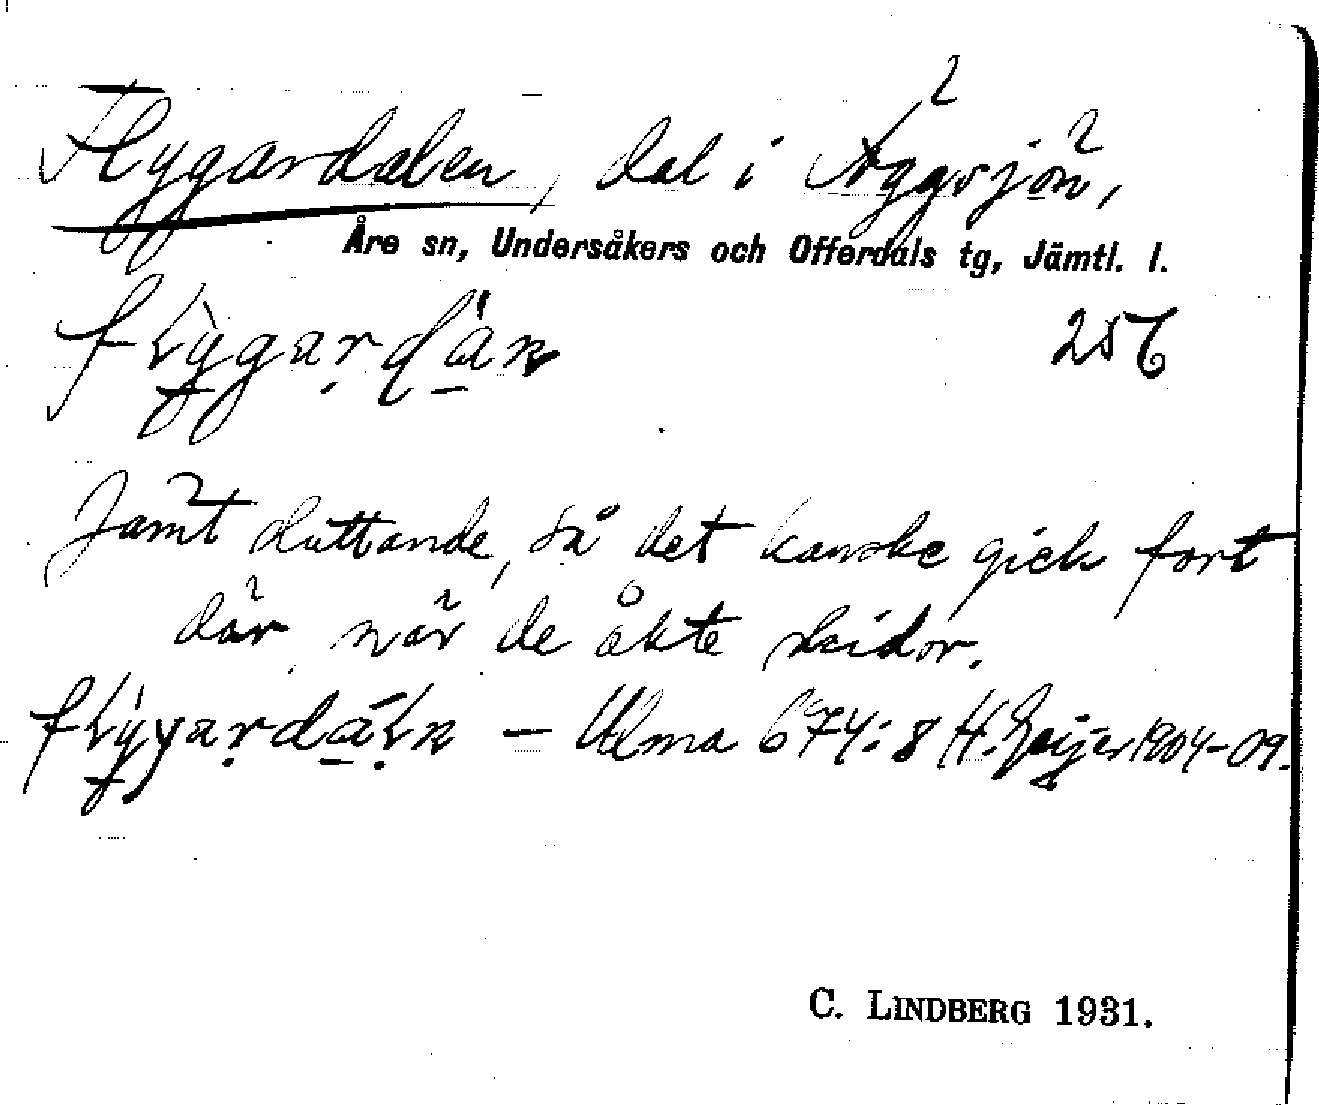 Flygardalen, dal i Äggsjön,
Åre sn, Undersåkers och Offerdals tg, Jämtl. l.
256
Jämt sluttande, så det kanske gick fort
där när de åkte skidor.
— Ulma 674:8 H. Geijer 1904-09.
C. LINDBERG 1931.